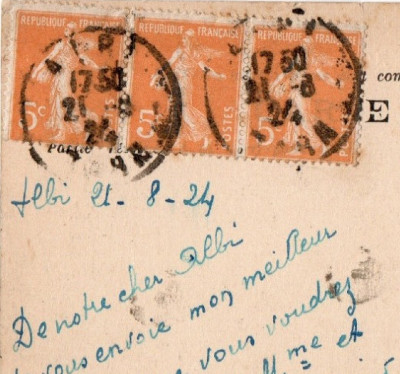 REPUBLIQUE FRANÇAISE REPUBLIQUE FRANÇAISE REPUBLIQUE FRANÇAISE
ALBI
17 50 17 50
21 - 8 21 - 8
24 24
TARN TARN
5c 5c 5c
POSTES POSTES
con
E
Partie
Albi 21 - 8 - 24
De notre cher Albi
vous envoie mon meilleur
vous voudrez
Mme et